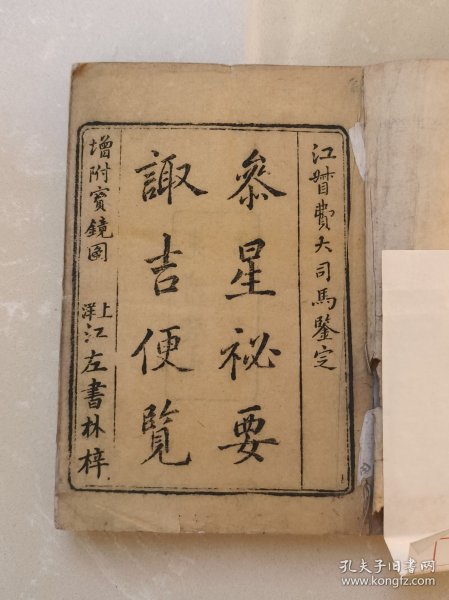 江督費大司馬鑒定
參星祕要
諏吉便覽
增附寳鏡圖
上洋江左書林梓
孔夫子旧书网
www.kongfz.com